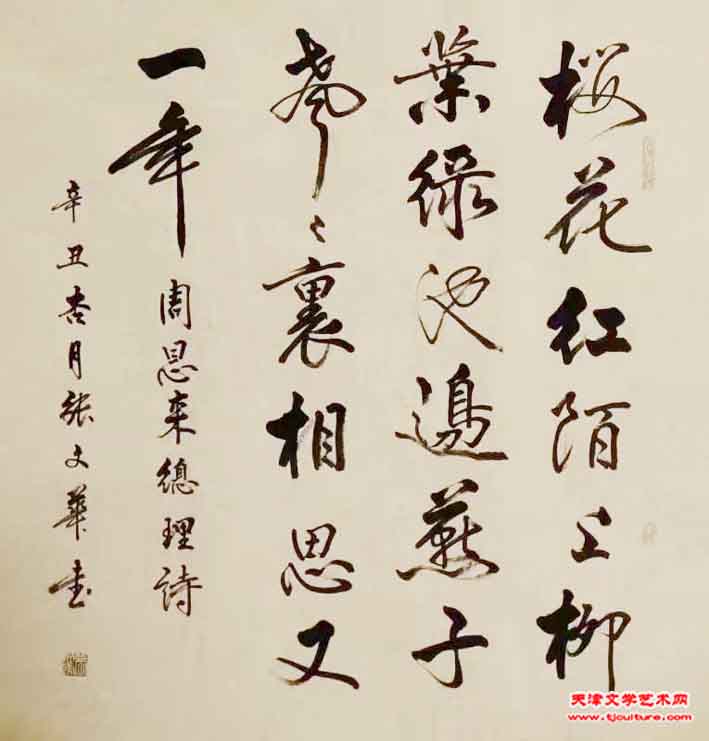 桜花红陌上柳
葉緑池邊燕子
聲〻裏相思又
一年
周恩来總理詩
辛丑杏月张文華書
天津文学艺术网
www.tjculture.com